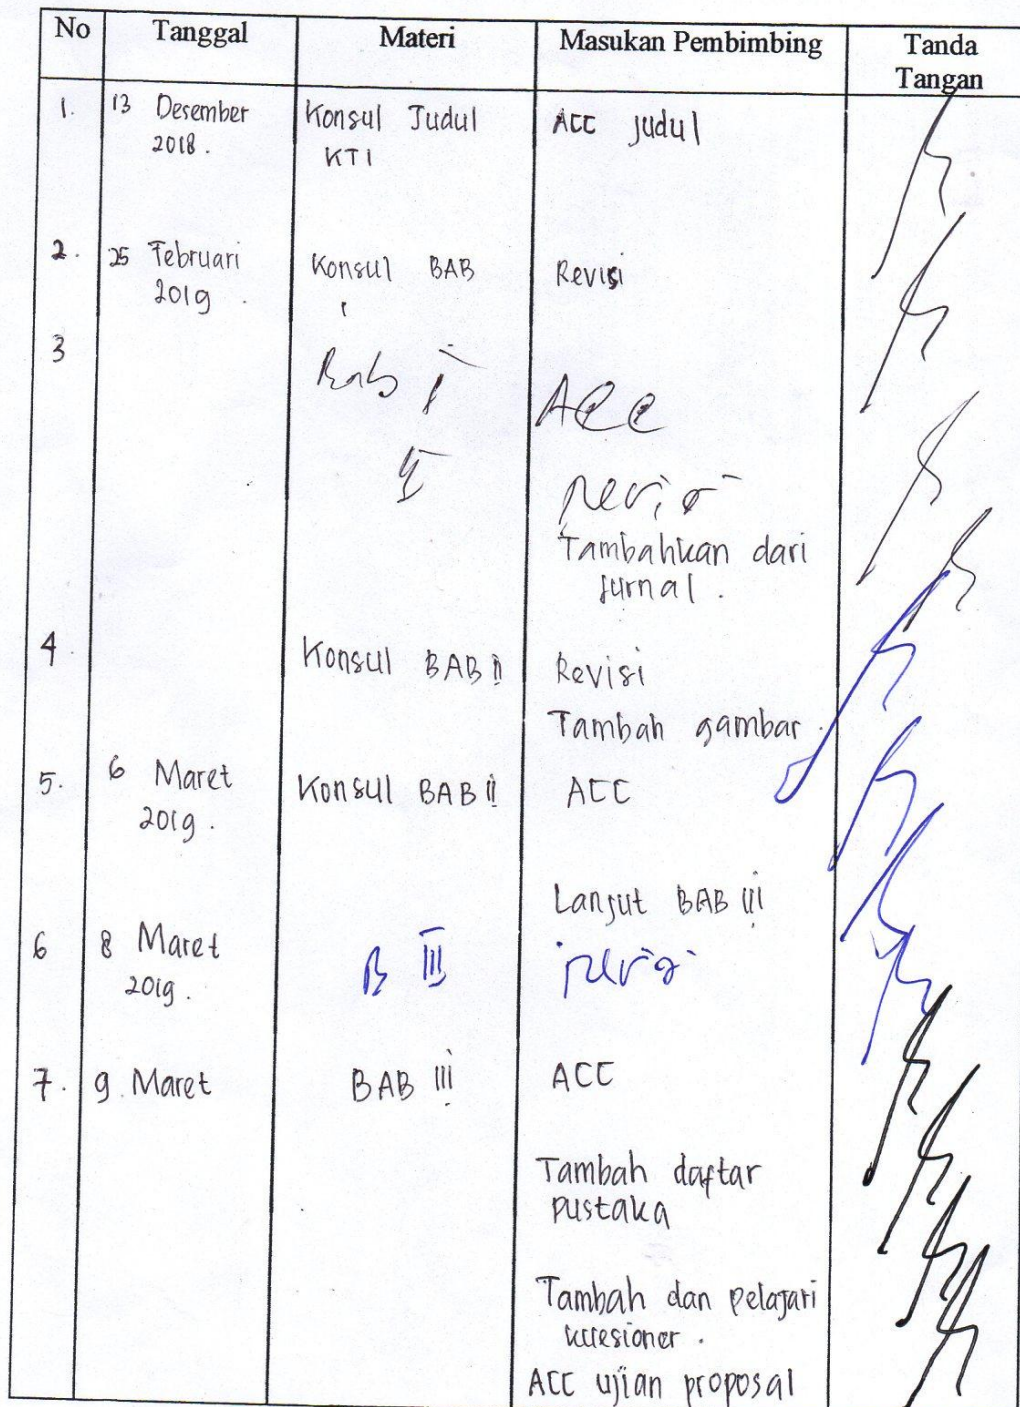 No Tanggal Materi Masukan Pembimbing Tanda
Tangan
1. 13 Desember Konsul Judul ACC judul
2018. KTI
2. 25 Februari Konsul BAB Revisi
2019. I
3 Bab I ACC
II revisi
Tambahkan dari
jurnal.
4 Konsul BAB II Revisi
Tambah gambar.
5. 6 Maret Konsul BAB II ACC
2019.
Lanjut BAB III
6 8 Maret B III revisi
2019.
7. 9 Maret BAB III ACC
Tambah daftar
pustaka
Tambah dan pelajari
kuesioner.
ACC ujian proposal